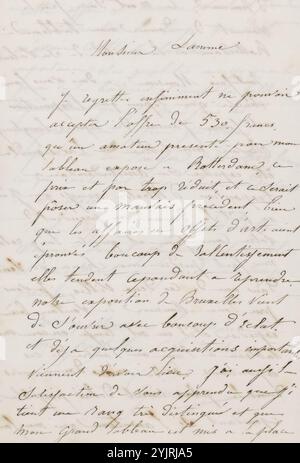 Monsieur Lamme
Je regrette infiniment ne pouvoir
accepter l'offre de 530 francs
qu'un amateur present pour mon
tableau exposé à Rotterdam, ce
prix est par trop réduit, et ce serait
poser un mauvais précédent bien
que les affaires en objets d'art aient
éprouvé beaucoup de rallentissement
elles tendent cependant a reprendre
notre exposition de Bruxelles vient
de s'ouvrir avec beaucoup d'éclat
et déja quelques acquisitions importan
viennent d'avoir lieu. J'ai aussi la
satisfaction de vous apprendre que j'
tient un rang très distingué et que
mon Grand tableau est mis a la place
alamy
Image ID: 2YRJA58
www.alamy.com